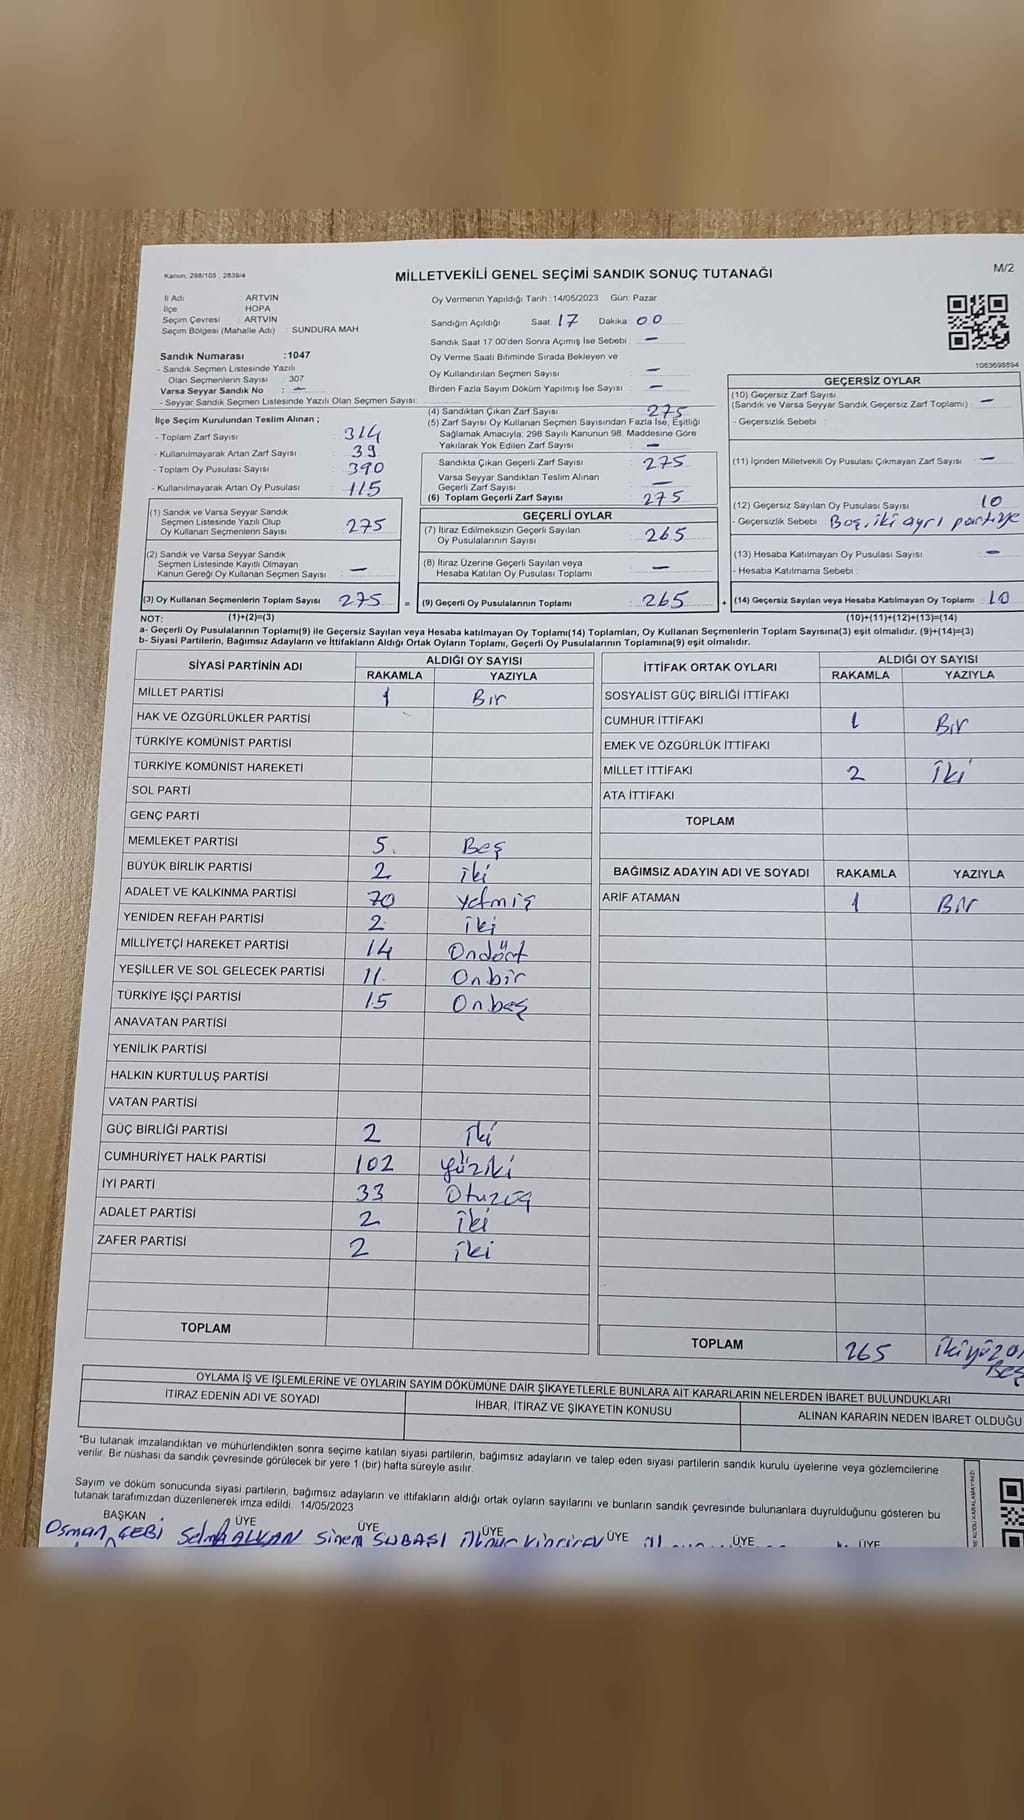 Kanun; 298/105 ; 2839/4
MİLLETVEKİLİ GENEL SEÇİMİ SANDIK SONUÇ TUTANAĞI
M/2
İl Adı ARTVIN
İlçe HOPA
Seçim Çevresi ARTVIN
Seçim Bölgesi (Mahalle Adı) : SUNDURA MAH.
Sandık Numarası :1047
- Sandık Seçmen Listesinde Yazılı
Olan Seçmenlerin Sayısı : 307
Varsa Seyyar Sandık No : –
- Seyyar Sandık Seçmen Listesinde Yazılı Olan Seçmen Sayısı:
Oy Vermenin Yapıldığı Tarih :14/05/2023 Gün: Pazar
Sandığın Açıldığı Saat: 17 Dakika 00
Sandık Saat 17:00'den Sonra Açımış İse Sebebi : –
Oy Verme Saati Bitiminde Sırada Bekleyen ve
Oy Kullandırılan Seçmen Sayısı –
Birden Fazla Sayım Döküm Yapılmış İse Sayısı : –
1083698894
İlçe Seçim Kurulundan Teslim Alınan ;
- Toplam Zarf Sayısı : 314
- Kullanılmayarak Artan Zarf Sayısı : 39
- Toplam Oy Pusulası Sayısı : 390
- Kullanılmayarak Artan Oy Pusulası : 115
(1) Sandık ve Varsa Seyyar Sandık
Seçmen Listesinde Yazılı Olup
Oy Kullanan Seçmenlerin Sayısı : 275
(2) Sandık ve Varsa Seyyar Sandık
Seçmen Listesinde Kayıtlı Olmayan
Kanun Gereği Oy Kullanan Seçmen Sayısı : –
(3) Oy Kullanan Seçmenlerin Toplam Sayısı : 275 =
(4) Sandıktan Çıkan Zarf Sayısı : 275
(5) Zarf Sayısı Oy Kullanan Seçmen Sayısından Fazla İse, Eşitliği
Sağlamak Amacıyla; 298 Sayılı Kanunun 98. Maddesine Göre
Yakılarak Yok Edilen Zarf Sayısı : –
Sandıkta Çıkan Geçerli Zarf Sayısı : 275
Varsa Seyyar Sandıktan Teslim Alınan
Geçerli Zarf Sayısı : –
(6) Toplam Geçerli Zarf Sayısı : 275
GEÇERLİ OYLAR
(7) İtiraz Edilmeksizin Geçerli Sayılan
Oy Pusulalarının Sayısı : 265
(8) İtiraz Üzerine Geçerli Sayılan veya
Hesaba Katılan Oy Pusulası Toplamı : –
(9) Geçerli Oy Pusulalarının Toplamı : 265 +
GEÇERSİZ OYLAR
(10) Geçersiz Zarf Sayısı
(Sandık ve Varsa Seyyar Sandık Geçersiz Zarf Toplamı) : –
- Geçersizlik Sebebi :
(11) İçinden Milletvekili Oy Pusulası Çıkmayan Zarf Sayısı : –
(12) Geçersiz Sayılan Oy Pusulası Sayısı : 10
- Geçersizlik Sebebi : Boş, iki ayrı partiye
(13) Hesaba Katılmayan Oy Pusulası Sayısı : –
- Hesaba Katılmama Sebebi :
(14) Geçersiz Sayılan veya Hesaba Katılmayan Oy Toplamı : 10
NOT: (1)+(2)=(3) (10)+(11)+(12)+(13)=(14)
a- Geçerli Oy Pusulalarının Toplamı(9) ile Geçersiz Sayılan veya Hesaba katılmayan Oy Toplamı(14) Toplamları, Oy Kullanan Seçmenlerin Toplam Sayısına(3) eşit olmalıdır. (9)+(14)=(3)
b- Siyasi Partilerin, Bağımsız Adayların ve İttifakların Aldığı Ortak Oyların Toplamı, Geçerli Oy Pusulalarının Toplamına(9) eşit olmalıdır.
SİYASİ PARTİNİN ADI ALDIĞI OY SAYISI
RAKAMLA YAZIYLA
MİLLET PARTİSİ 1 Bir
HAK VE ÖZGÜRLÜKLER PARTİSİ
TÜRKİYE KOMÜNİST PARTİSİ
TÜRKİYE KOMÜNİST HAREKETİ
SOL PARTİ
GENÇ PARTİ
MEMLEKET PARTİSİ 5 Beş
BÜYÜK BİRLİK PARTİSİ 2 iki
ADALET VE KALKINMA PARTİSİ 70 yetmiş
YENİDEN REFAH PARTİSİ 2 iki
MİLLİYETÇİ HAREKET PARTİSİ 14 Ondört
YEŞİLLER VE SOL GELECEK PARTİSİ 11 Onbir
TÜRKİYE İŞÇİ PARTİSİ 15 Onbeş
ANAVATAN PARTİSİ
YENİLİK PARTİSİ
HALKIN KURTULUŞ PARTİSİ
VATAN PARTİSİ
GÜÇ BİRLİĞİ PARTİSİ 2 İki
CUMHURİYET HALK PARTİSİ 102 yüziki
İYİ PARTİ 33 Otuzüç
ADALET PARTİSİ 2 iki
ZAFER PARTİSİ 2 iki
TOPLAM
İTTİFAK ORTAK OYLARI ALDIĞI OY SAYISI
RAKAMLA YAZIYLA
SOSYALİST GÜÇ BİRLİĞİ İTTİFAKI
CUMHUR İTTİFAKI 1 Bir
EMEK VE ÖZGÜRLÜK İTTİFAKI
MİLLET İTTİFAKI 2 İki
ATA İTTİFAKI
TOPLAM
BAĞIMSIZ ADAYIN ADI VE SOYADI RAKAMLA YAZIYLA
ARİF ATAMAN 1 Bir
TOPLAM 265
Beş
OYLAMA İŞ VE İŞLEMLERİNE VE OYLARIN SAYIM DÖKÜMÜNE DAİR ŞİKAYETLERLE BUNLARA AİT KARARLARIN NELERDEN İBARET BULUNDUKLARI
İTİRAZ EDENİN ADI VE SOYADI İHBAR, İTİRAZ VE ŞİKAYETİN KONUSU ALINAN KARARIN NEDEN İBARET OLDUĞU
*Bu tutanak imzalandıktan ve mühürlendikten sonra seçime katılan siyasi partilerin, bağımsız adayların ve talep eden siyasi partilerin sandık kurulu üyelerine veya gözlemcilerine
verilir. Bir nüshası da sandık çevresinde görülecek bir yere 1 (bir) hafta süreyle asılır.
Sayım ve döküm sonucunda siyasi partilerin, bağımsız adayların ve ittifakların aldığı ortak oyların sayılarını ve bunların sandık çevresinde bulunanlara duyrulduğunu gösteren bu
tutanak tarafımızdan düzenlenerek imza edildi. 14/05/2023
BAŞKAN ÜYE ÜYE ÜYE ÜYE ÜYE ÜYE
Osman ÇEBİ Selma ALKAN Sinem SUBAŞI